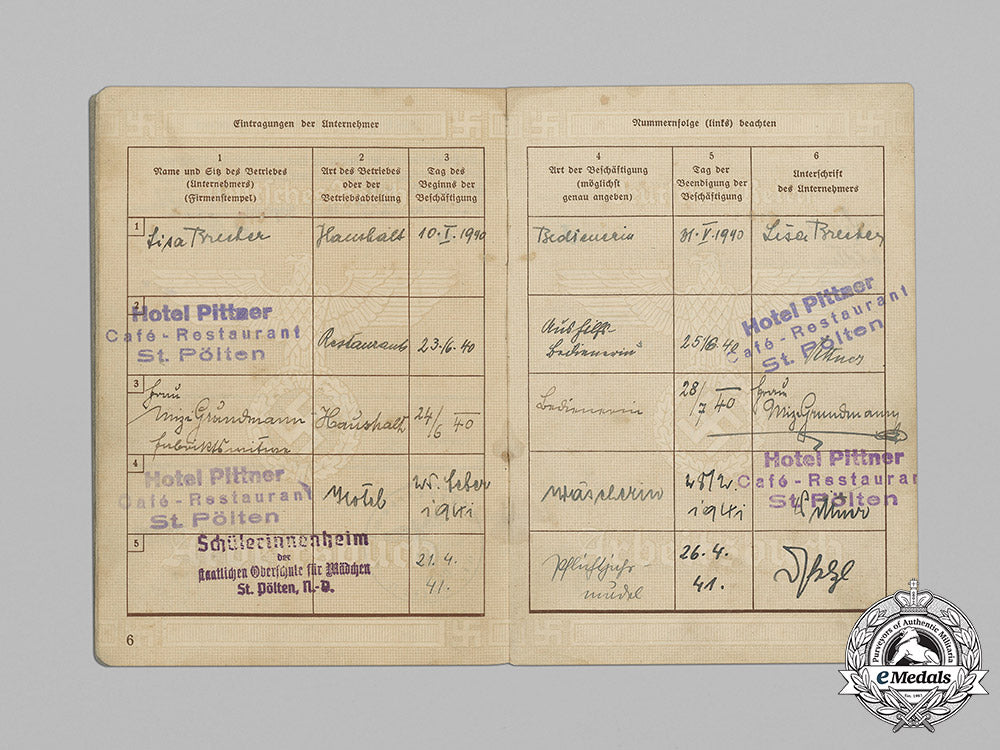 Eintragungen der Unternehmer
Nummernfolge (links) beachten
1
Name und Sitz des Betriebes
(Unternehmers)
(Firmenstempel)
2
Art des Betriebes
oder der
Betriebsabteilung
3
Tag des
Beginns der
Beschäftigung
4
Art der Beschäftigung
(möglichst
genau angeben)
5
Tag der
Beendigung der
Beschäftigung
6
Unterschrift
des Unternehmers
1
Lisa Brecher
Haushalt
10. V. 1940
Bedienerin
31. V. 1940
Lisa Brecher
2
Hotel Pittner
Café - Restaurant
St. Pölten
Restaurant
23./6. 40
Aushilfs-
Bedienerin
25/6. 40
Hotel Pittner
Café - Restaurant
St. Pölten
Pittner
3
Frau
Mizi Grundmann
Fabrikswitwe
Haushalt
24/6 40
Bedienerin
28/7 40
Frau
Mizi Grundmann
4
Hotel Pittner
Café - Restaurant
St. Pölten
Hotel
1941
Wäscherin
1941
Hotel Pittner
Café - Restaurant
St. Pölten
Pittner
5
Schülerinnenheim
der
staatlichen Oberschule für Mädchen
St. Pölten, N.-D.
21. 4.
41.
Pflichtjahr-
mädel
26. 4.
41.
Arbeitsbuch
Arbeitsbuch
6
Purveyors of Authentic Militaria
eMedals